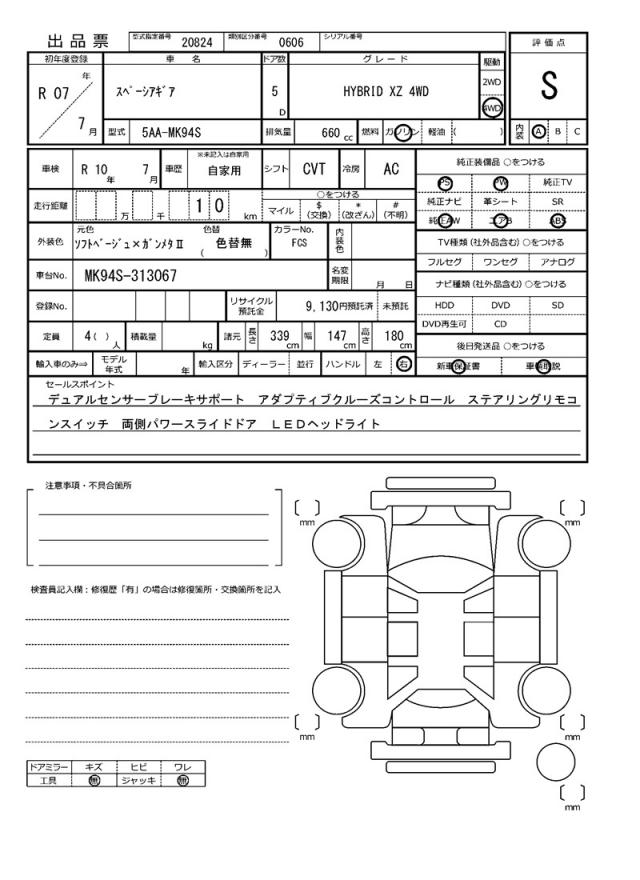 出品票
型式指定番号 20824 類別区分番号 0606 シリアル番号
評価点
S
初年度登録 車名 ドア数 グレード 駆動
R 07 年 7 月
スペーシアギア 5 D HYBRID XZ 4WD
2WD
4WD
型式 5AA-MK94S 排気量 660 cc 燃料 ガソリン 軽油 ( )
内装 A B C
車検 R 10 年 7 月 車歴 ※未記入は自家用 自家用 シフト CVT 冷房 AC
純正装備品 ○をつける
PS PW 純正TV
純正ナビ 革シート SR
純正AW エアB ABS
走行距離 万 千 1 0 km
○をつける
マイル $(交換) *(改ざん) #(不明)
外装色 元色 ソフトベージュ×ガンメタⅡ 色替 色替無 ( ) カラーNo. FCS 内装色
TV種類(社外品含む)○をつける
フルセグ ワンセグ アナログ
車台No. MK94S-313067 名変期限 月 日
ナビ種類(社外品含む)○をつける
HDD DVD SD
DVD再生可 CD
登録No. リサイクル預託金 9,130円預託済 未預託
定員 4( )人 積載量 kg 諸元 長さ 339 cm 幅 147 cm 高さ 180 cm
後日発送品 ○をつける
新車保証書 車輌取説
輸入車のみ⇒ モデル年式 年 輸入区分 ディーラー 並行 ハンドル 左 右
セールスポイント
デュアルセンサーブレーキサポート アダプティブクルーズコントロール ステアリングリモコ
ンスイッチ 両側パワースライドドア LEDヘッドライト
注意事項・不具合箇所
検査員記入欄：修復歴「有」の場合は修復箇所・交換箇所を記入
mm
mm
mm
mm
mm
ドアミラー キズ ヒビ ワレ
工具 無 ジャッキ 無